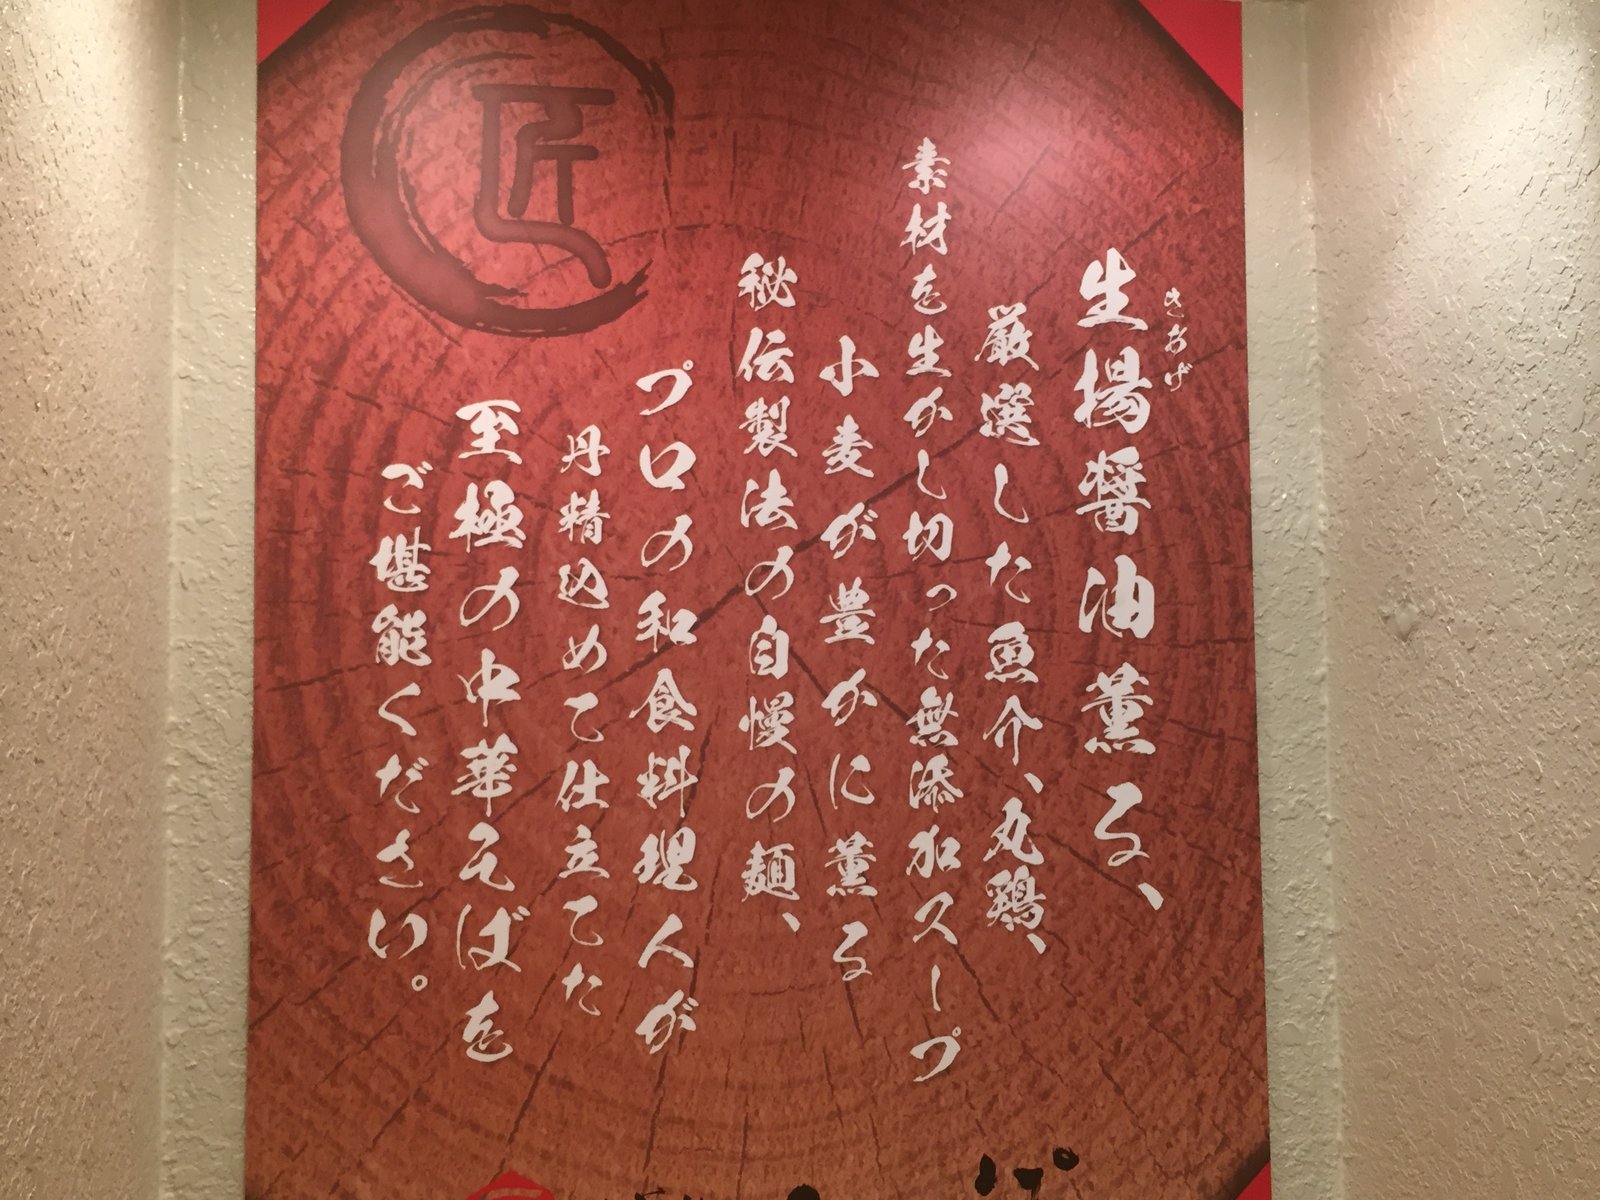 匠
きあげ
生揚醤油薫る、
厳選した魚介、丸鶏、
素材を生かし切った無添加スープ
小麦が豊かに薫る
秘伝製法の自慢の麺、
プロの和食料理人が
丹精込めて仕立てた
至極の中華そばを
ご堪能ください。